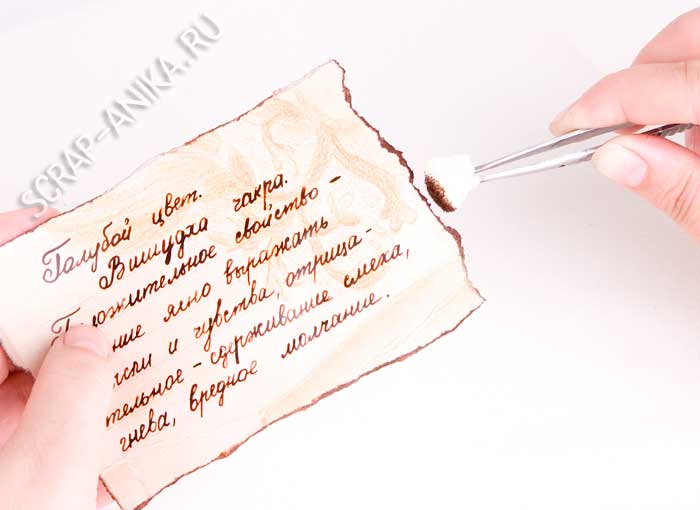 SCRAP-ANIKA.RU
Голубой цвет.
Вишудха чакра.
Положительное свойство -
ние ясно выражать
сли и чувства, отрица-
тельное - сдерживание смеха,
гнева, вредное молчание.